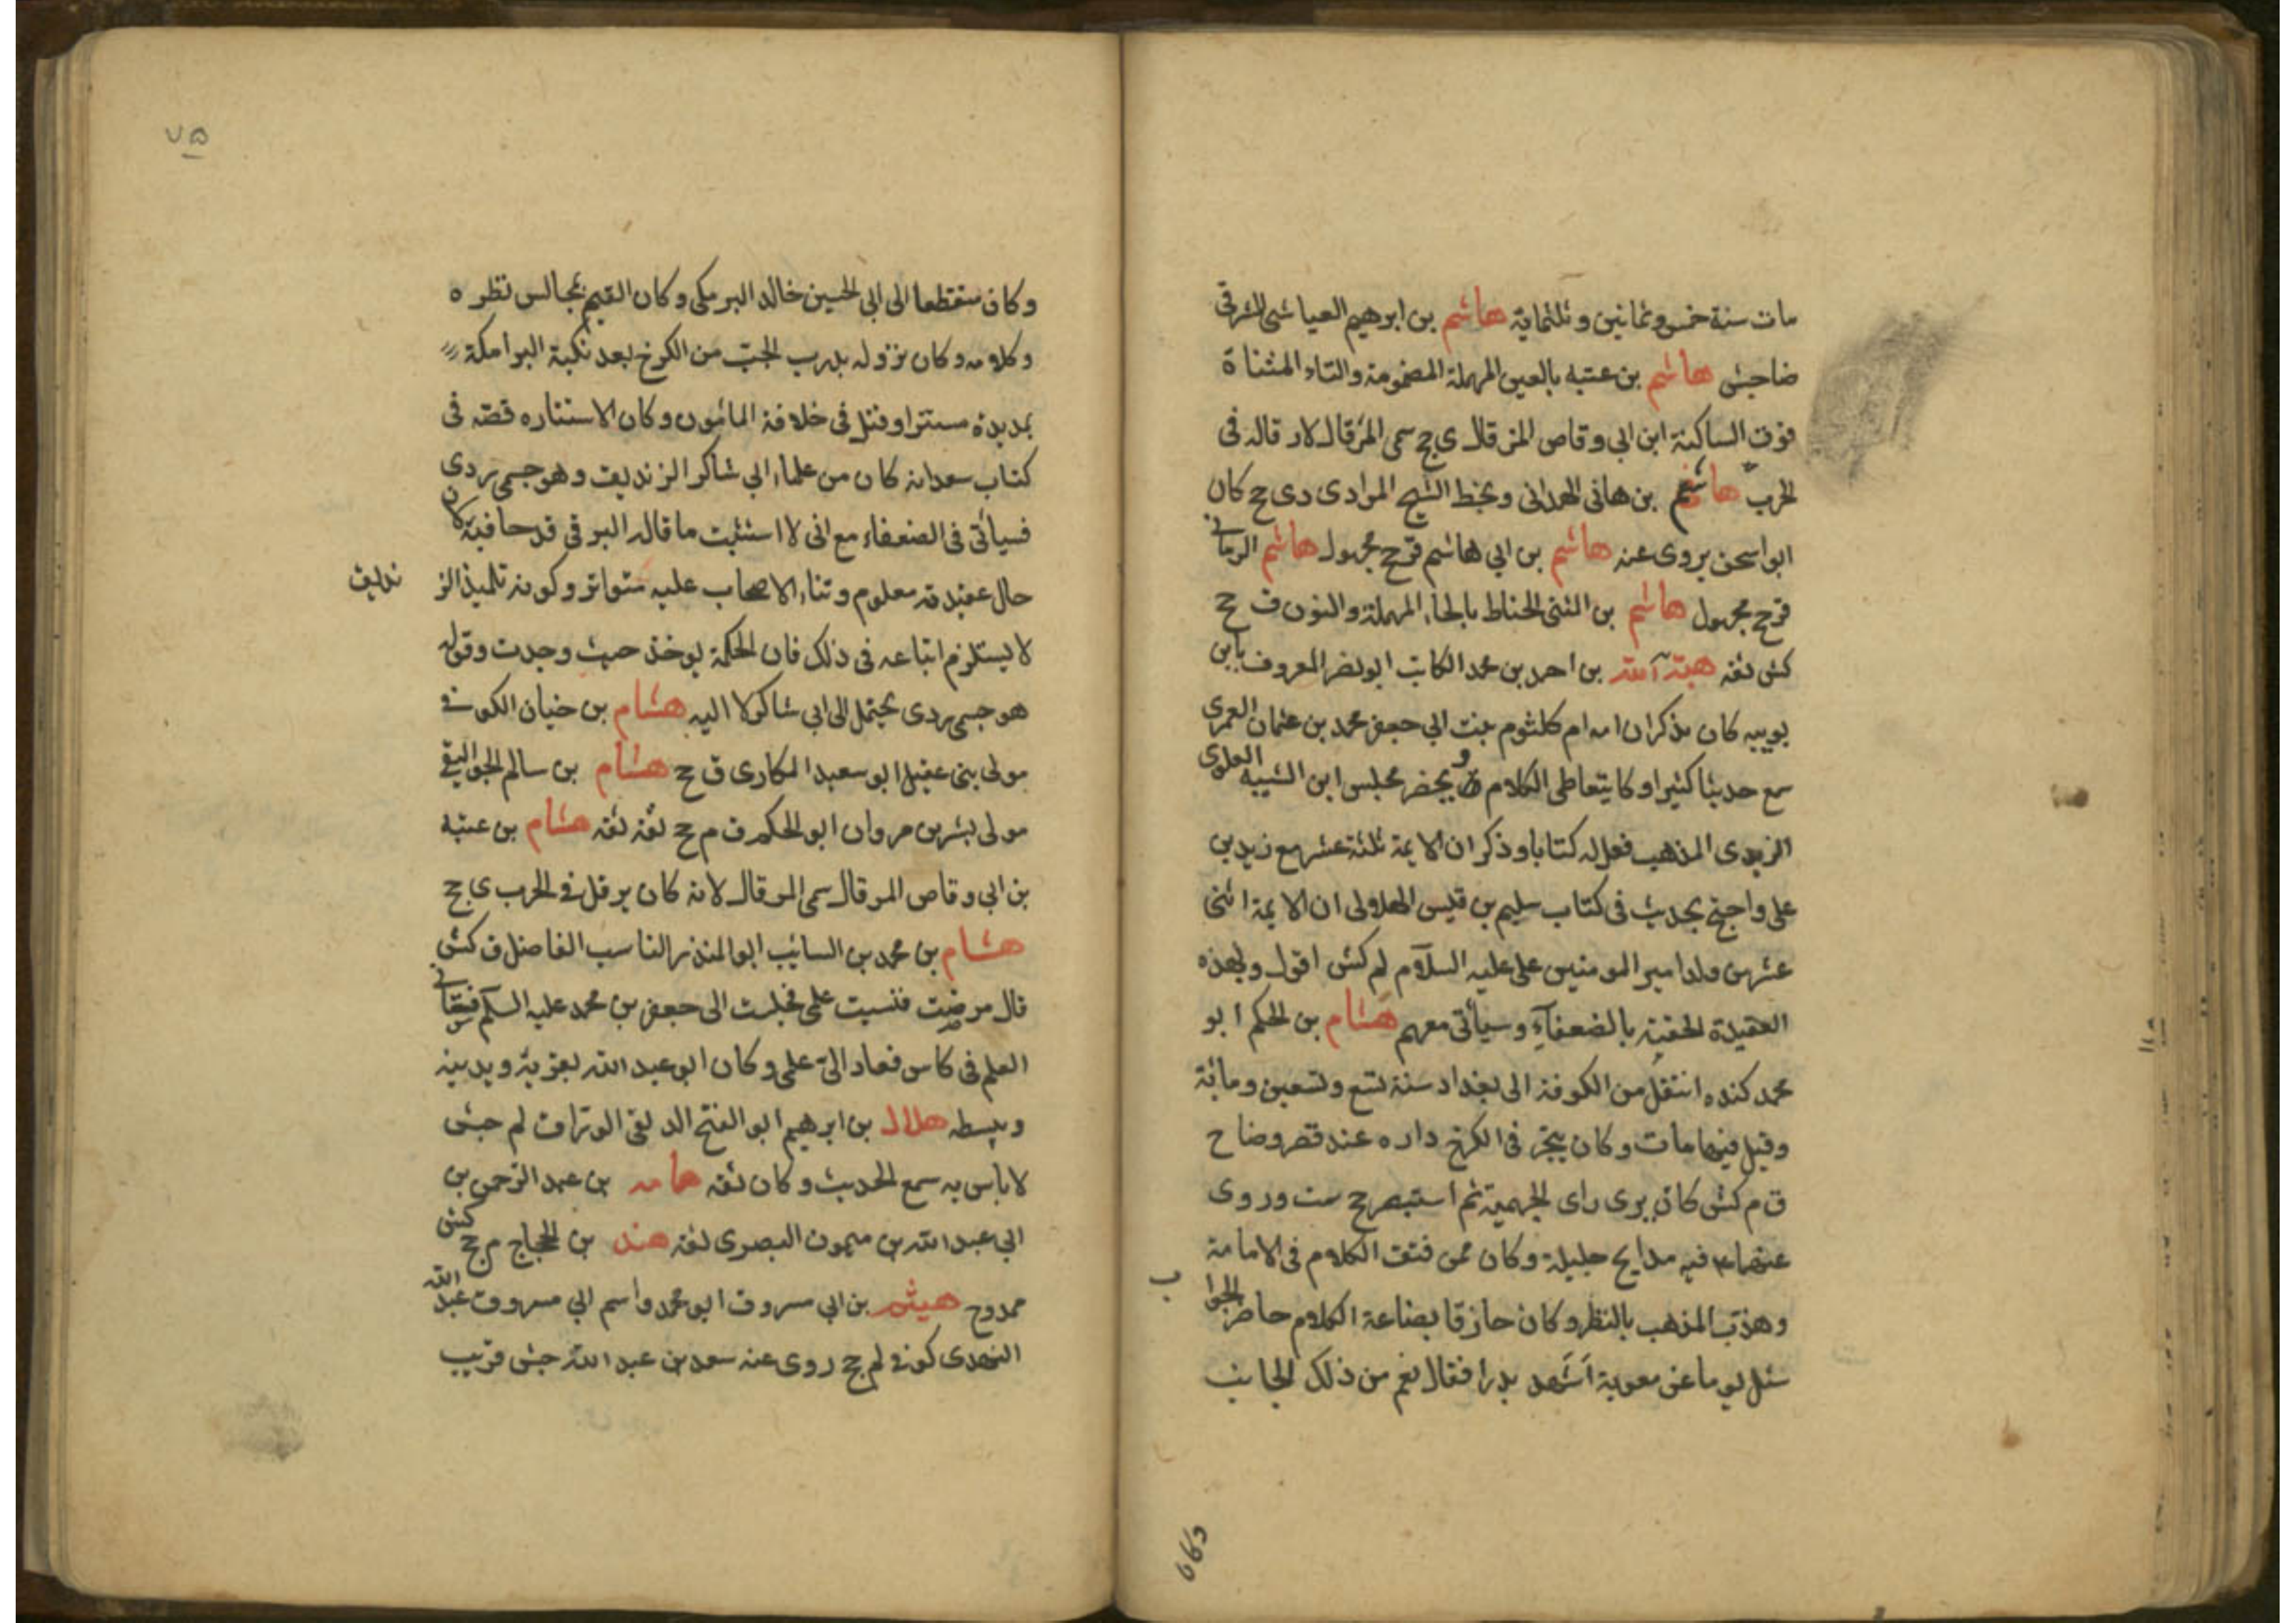 مات سنة خمس وثمانين وثلثماية هاشم بن ابرهيم العياشى المشرقى
ضاجش هاشم بن عتبه بالعين المهملة المضمومة والتاء المثناة
فوق الساكنة ابن ابي وقاص المرقال ى جح سمى المرقال لار قاله فى
الحرب هاشم بن هانى الهمدانى وبخط الشيح المرادى دى جح كان
ابواسحق يروى عنه هاشم بن ابي هاشم قرجح مجهول هاشم الرمانى
قرجح مجهول هاشم بن المثنى الحناط بالحاء المهملة والنون ق جح
كش ثقه هبة الله بن احمد بن محمد الكاتب ابو نصر المعروف بابن
بويبه كان يذكر ان امه ام كلثوم بنت ابي جعفر محمد بن عثمان العمرى
سمع حديثا كثيرا وكا يتعاطى الكلام و يحضر مجلس ابن الشبيه العلوى
الزيدى المذهب فعل له كتابا وذكر ان الايمة ثلثة عشر مع زيد بن
على واحتج بحديث فى كتاب سليم بن قيس الهلالى ان الايمة اثنى
عشر من ولد امير المومنين على عليه السلام لم كش اقول ولهذه
العقيدة الحقته بالضعفاء وسيأتى معهم هشام بن الحكم ابو
محمد كنده انتقل من الكوفة الى بغداد سنة تسع وتسعين ومائة
وقيل فيها مات وكان يتجر فى الكرخ داره عند قصر وضاح
ق م كش كان يرى راى الجهمية ثم استبصر جح ست وروى
عنهما فيه مدايح جليلة وكان ممن فتق الكلام فى الامامة
وهذب المذهب بالنظر وكان حازقا بصناعة الكلام حاضر الجوا
ب
سئل يوما عن معوية اشهد بدرا فقال نعم من ذلك الجانب
وكان
٧٥
وكان منقطعا الى ابي الحسين خالد البرمكى وكان القيم بمجالس نظره
وكلامه وكان نزوله بدرب الجب من الكرخ بعد نكبة البرامكة
بمديدة مستترا وقتل فى خلافة المائمون وكان الاستتاره قصه فى
كتاب سعد انه كان من علماء ابي شاكر الزنديق وهو جسمى ردى
فسيأتى فى الضعفاء مع انى لا استثبت ما قاله البرقى قدحا فيه كان
حال عقيدته معلوم وثناء الاصحاب عليه متواتر وكونه تلميذ الز
نديق
لا يستلزم اتباعه فى ذلك فان الحكمة يوخذ حيث وجدت وقوله
هو جسمى ردى يحتمل الى ابي شاكر لا اليه هشام بن حيان الكوفى
مولى بنى عقيل ابو سعيد المكارى ق جح هشام بن سالم الجواليقى
مولى بشر بن مروان ابو الحكم ق م جح ثقة ثقه هشام بن عتبه
بن ابي وقاص المرقال سمى المرقال لانه كان يرقل فى الحرب ى جح
هشام بن محمد بن السائب ابو المنذر الناسب الفاضل ق كش
قال مرضت فنسيت علمى فجلست الى جعفر بن محمد عليه السلام فسقانى
العلم فى كاس فعاد الى علمى وكان ابو عبد الله يعزبه ويدينه
ويبسطه هلال بن ابرهيم ابو الفتح الدلفى الوراق لم جش
لاباس به سمع الحديث وكان ثقه همامه بن عبد الرحمن بن
ابي عبد الله بن ميمون البصرى ثقه هند بن الحجاج م جح كش
ممدوح هيثم بن ابي مسروق ابو محمد واسم ابي مسروق عبد الله
النهدى كوفى لم جح روى عنه سعد بن عبد الله جش قريب